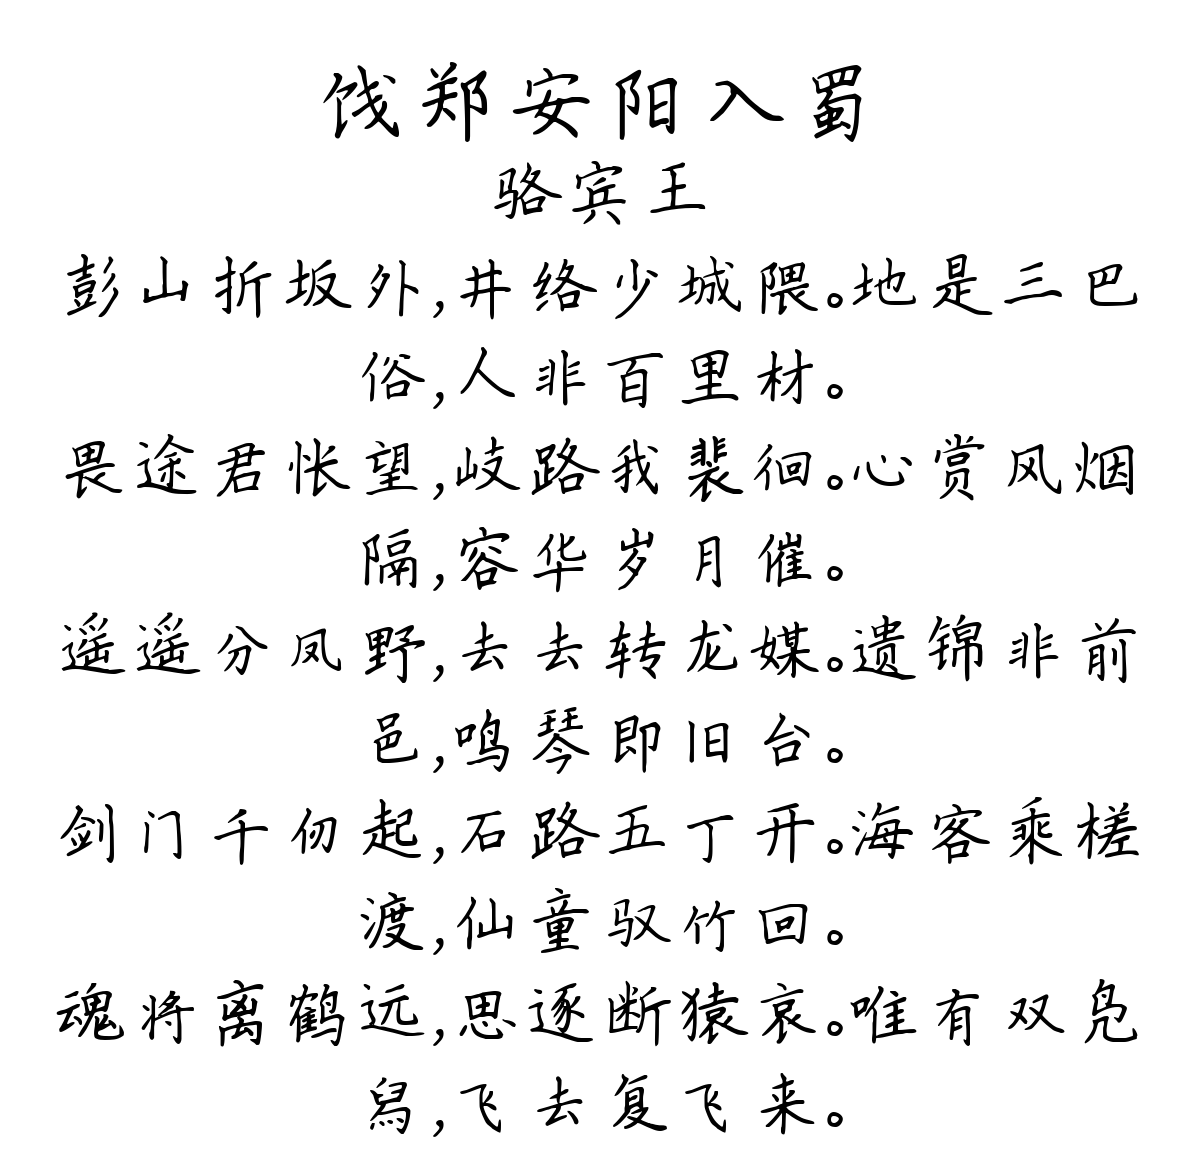 饯郑安阳入蜀
骆宾王
彭山折坂外,井络少城隈。地是三巴
俗,人非百里材。
畏途君怅望,岐路我裴徊。心赏风烟
隔,容华岁月催。
遥遥分凤野,去去转龙媒。遗锦非前
邑,鸣琴即旧台。
剑门千仞起,石路五丁开。海客乘槎
渡,仙童驭竹回。
魂将离鹤远,思逐断猿哀。唯有双凫
舄,飞去复飞来。